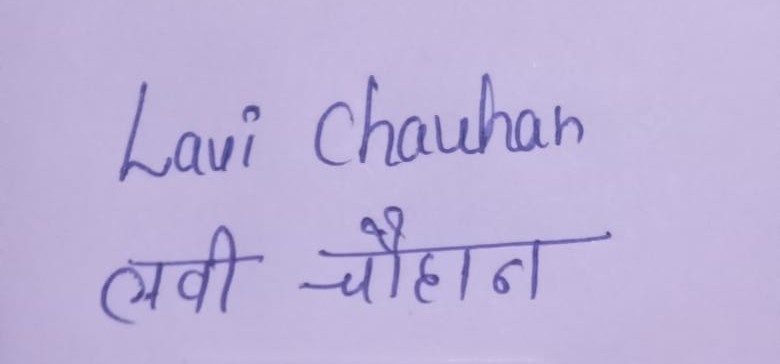 Lavi Chauhan
लवी चौहान